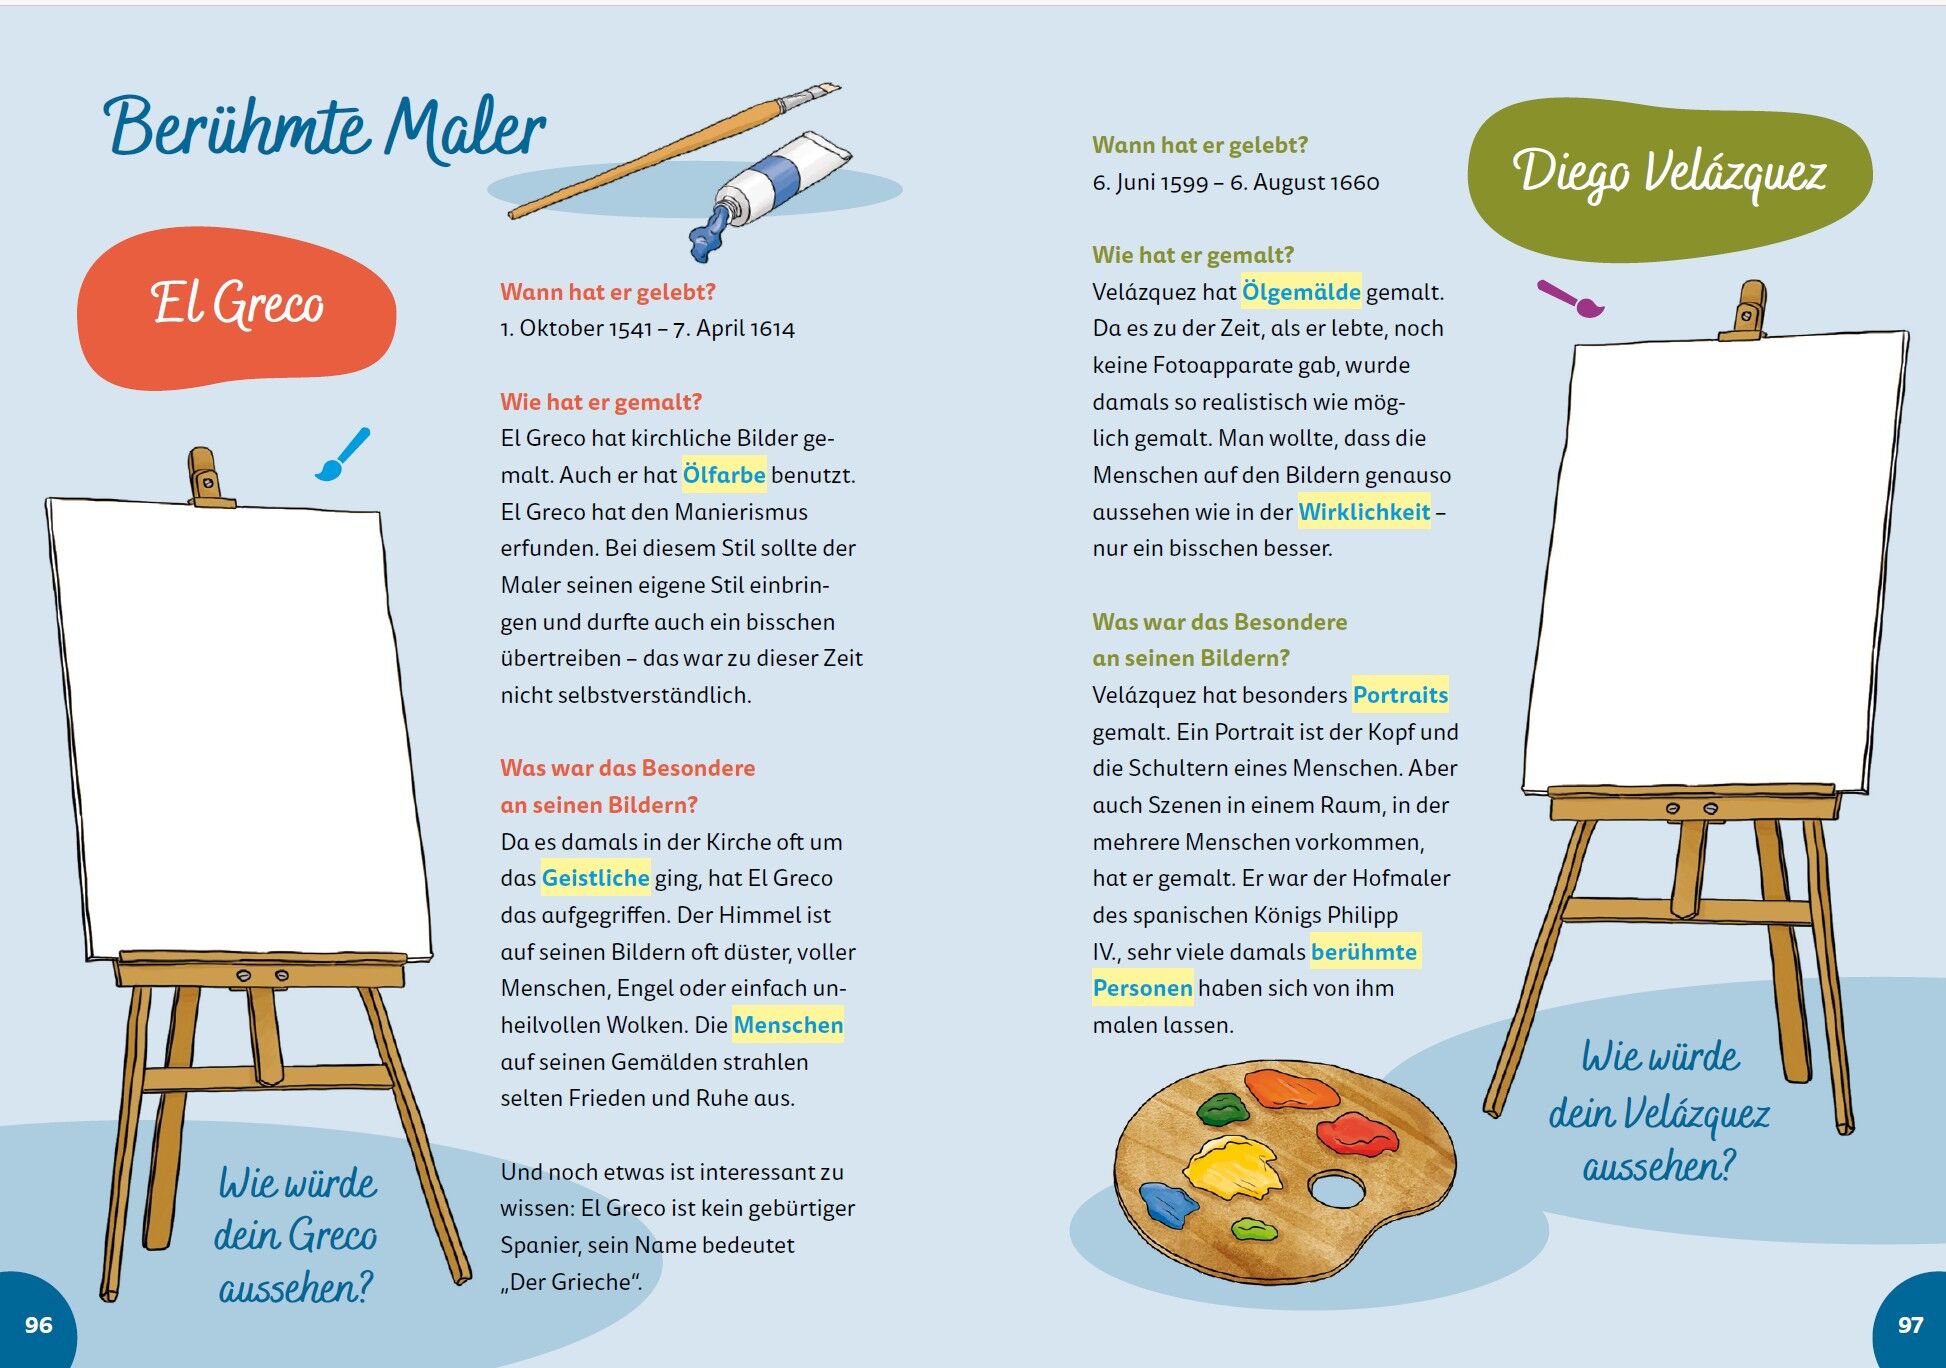 Berühmte Maler
El Greco
Wann hat er gelebt?
1. Oktober 1541 – 7. April 1614
Wie hat er gemalt?
El Greco hat kirchliche Bilder ge-
malt. Auch er hat Ölfarbe benutzt.
El Greco hat den Manierismus
erfunden. Bei diesem Stil sollte der
Maler seinen eigene Stil einbrin-
gen und durfte auch ein bisschen
übertreiben – das war zu dieser Zeit
nicht selbstverständlich.
Was war das Besondere
an seinen Bildern?
Da es damals in der Kirche oft um
das Geistliche ging, hat El Greco
das aufgegriffen. Der Himmel ist
auf seinen Bildern oft düster, voller
Menschen, Engel oder einfach un-
heilvollen Wolken. Die Menschen
auf seinen Gemälden strahlen
selten Frieden und Ruhe aus.
Und noch etwas ist interessant zu
wissen: El Greco ist kein gebürtiger
Spanier, sein Name bedeutet
„Der Grieche“.
Wie würde
dein Greco
aussehen?
96
Diego Velázquez
Wann hat er gelebt?
6. Juni 1599 – 6. August 1660
Wie hat er gemalt?
Velázquez hat Ölgemälde gemalt.
Da es zu der Zeit, als er lebte, noch
keine Fotoapparate gab, wurde
damals so realistisch wie mög-
lich gemalt. Man wollte, dass die
Menschen auf den Bildern genauso
aussehen wie in der Wirklichkeit –
nur ein bisschen besser.
Was war das Besondere
an seinen Bildern?
Velázquez hat besonders Portraits
gemalt. Ein Portrait ist der Kopf und
die Schultern eines Menschen. Aber
auch Szenen in einem Raum, in der
mehrere Menschen vorkommen,
hat er gemalt. Er war der Hofmaler
des spanischen Königs Philipp
IV., sehr viele damals berühmte
Personen haben sich von ihm
malen lassen.
Wie würde
dein Velázquez
aussehen?
97